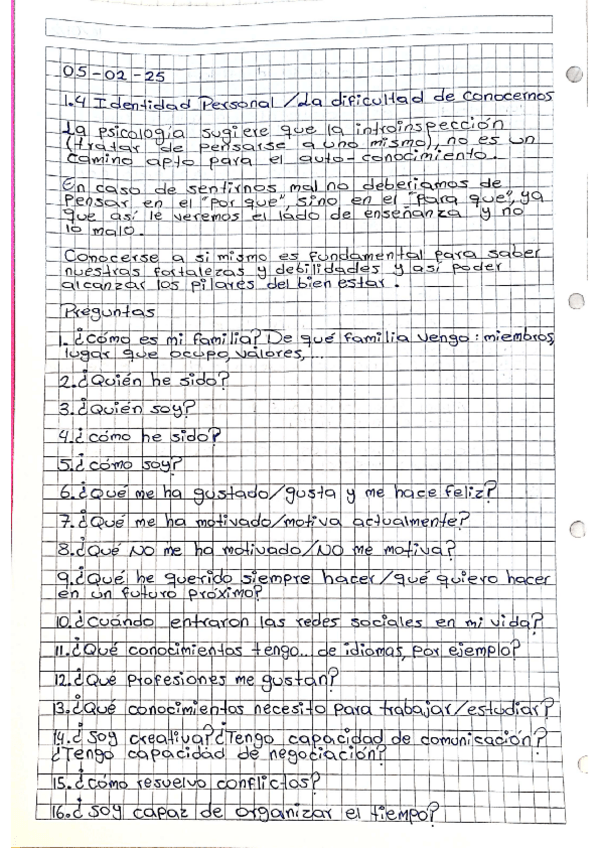 05-02-25
1.4 Identidad Personal / La dificultad de conocernos
La psicología sugiere que la introinspección
(tratar de pensarse a uno mismo), no es un
camino apto para el auto-conocimiento.
En caso de sentirnos mal no deberiamos de
pensar en el "por que", sino en el "para que", ya
que así le veremos el lado de enseñanza y no
lo malo.
Conocerse a si mismo es fundamental para saber
nuestras fortalezas y debilidades y así poder
alcanzar los pilares del bienestar.
Preguntas
1. ¿cómo es mi familia? De qué familia vengo: miembros,
lugar que ocupo, valores,...
2. ¿Quién he sido?
3. ¿Quién soy?
4. ¿cómo he sido?
5. ¿cómo soy?
6. ¿Qué me ha gustado/gusta y me hace feliz?
7. ¿Qué me ha motivado/motiva actualmente?
8. ¿Qué NO me ha motivado/NO me motiva?
9. ¿Qué he querido siempre hacer/qué quiero hacer
en un futuro próximo?
10. ¿cuándo entraron las redes sociales en mi vida?
11. ¿Qué conocimientos tengo... de idiomas, por ejemplo?
12. ¿Qué profesiones me gustan?
13. ¿Qué conocimientos necesito para trabajar/estudiar?
14. ¿Soy creativa? ¿Tengo capacidad de comunicación?
¿Tengo capacidad de negociación?
15. ¿cómo resuelvo conflictos?
16. ¿Soy capaz de organizar el tiempo?